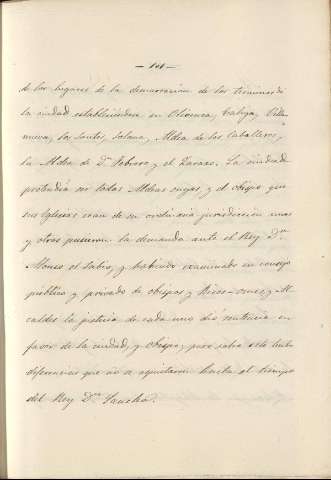 — 101 —
de los lugares de la demarcacion de los terminos de
la ciudad estableciendose en Olivenza, Taliga, Villa-
nueva, los Santos, Solana, Aldea de los Caballeros,
la Aldea de Dn Febrero y el Zarazo. La ciudad
pretendia ser todas Aldeas suyas, y el obispo que
sus Iglesias eran de su ordinaria jurisdiccion unos
y otros pusieron la demanda ante el Rey Dn
Alonso el Sabio, y habiendo examinado en consejo
publico y privado de obispos y Ricos-omes y Al
caldes la justicia de cada uno dió sentencia en
favor de la ciudad, y obispo, pero sobre esto hubo
diferencias que no se aquietaron hasta el tiempo
del Rey Dn Sancho.